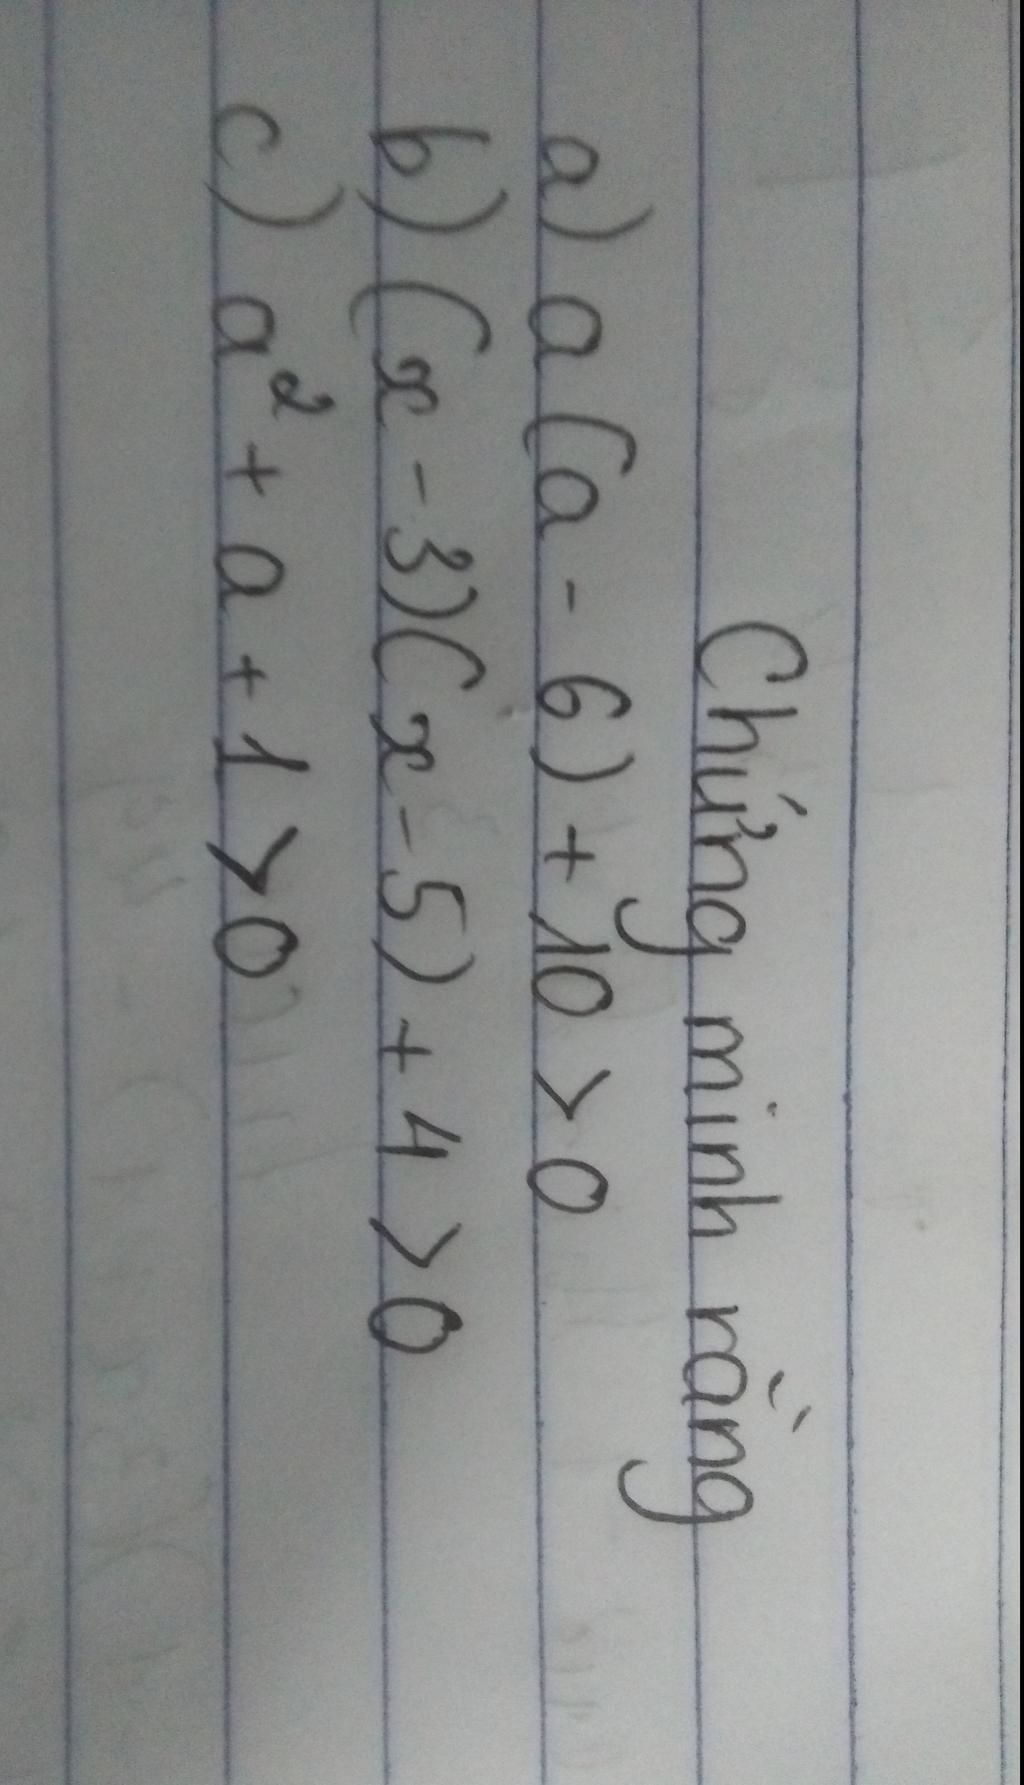 Chứng minh rằng
a) a (a - 6) + 10 > 0
b) (x - 3)(x - 5) + 4 > 0
c) a² + a + 1 > 0